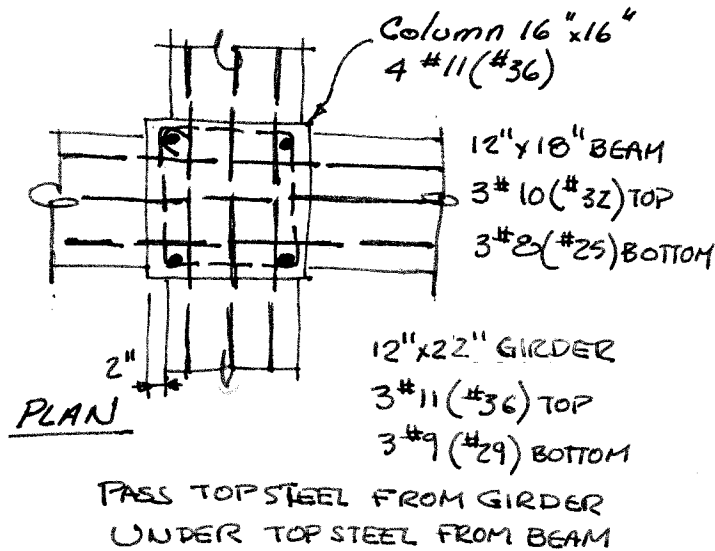 Column 16"x16"
4 #11(#36)
12"x18" BEAM
3#10(#32)TOP
3#8(#25)BOTTOM
12"x22" GIRDER
3#11(#36) TOP
3#9(#29) BOTTOM
2"
PLAN
PASS TOP STEEL FROM GIRDER
UNDER TOP STEEL FROM BEAM